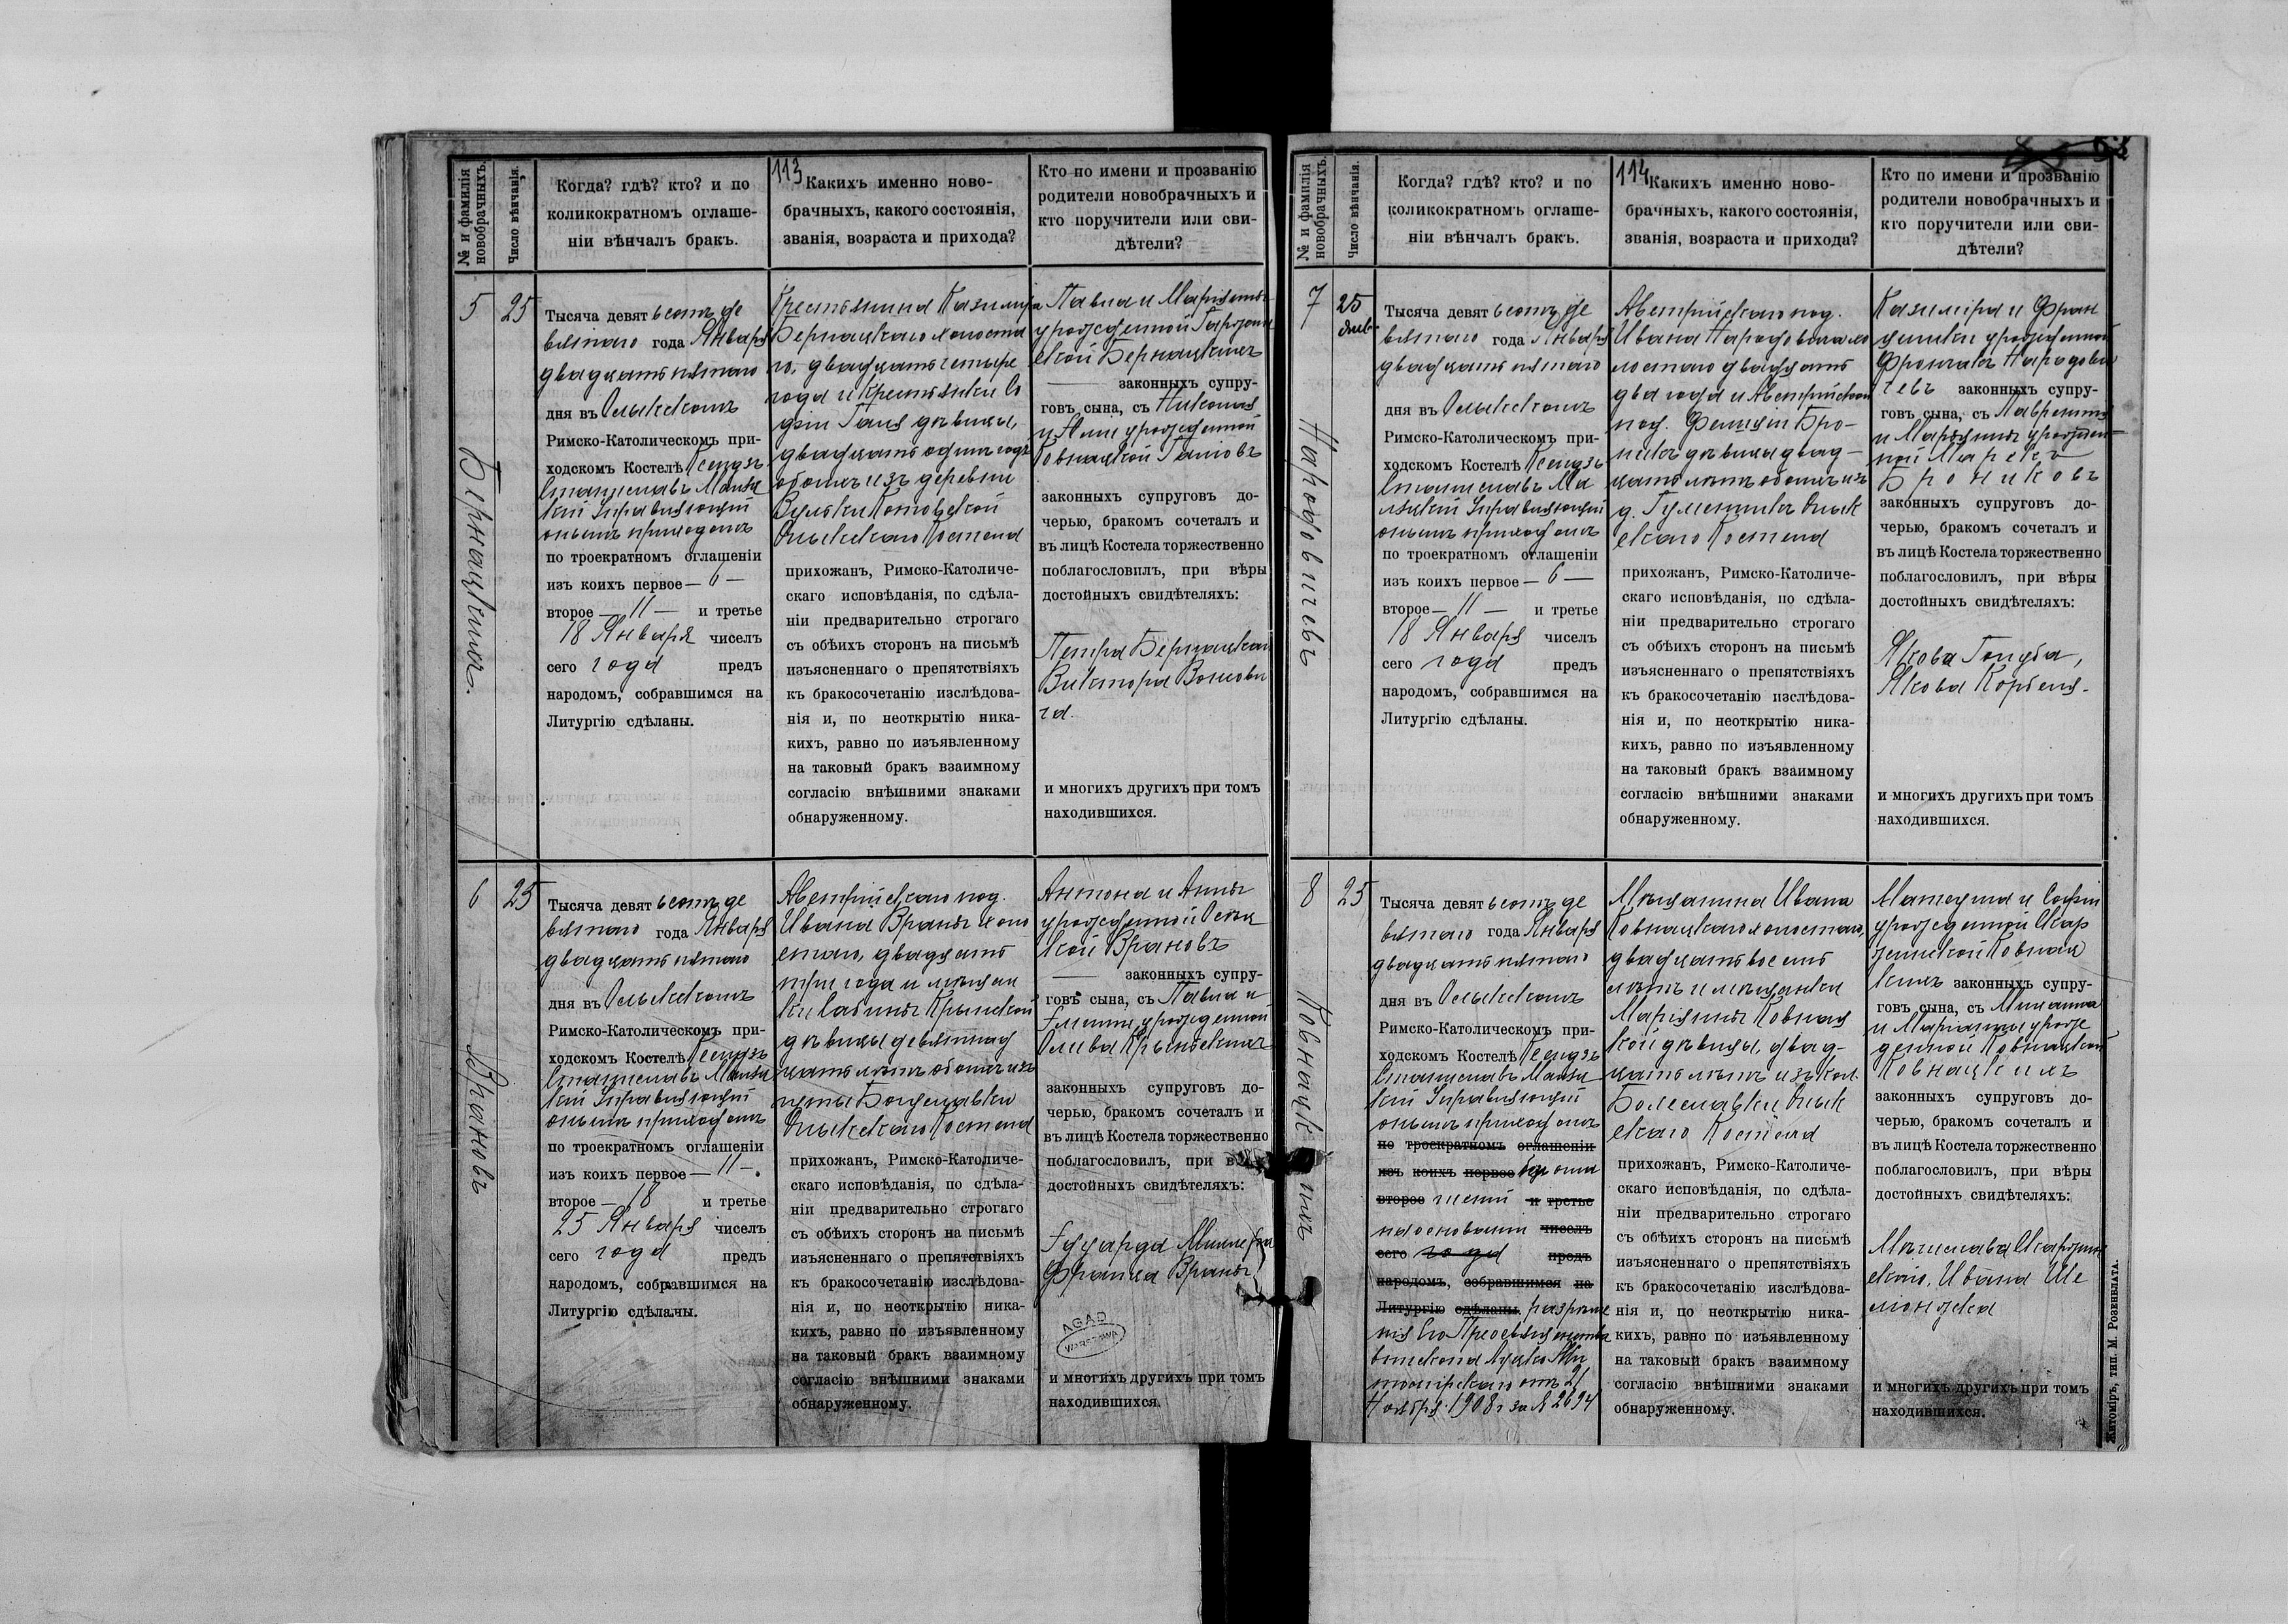 113
№ и фамилія новобрачныхъ.
Число вѣнчанія.
Когда? гдѣ? кто? и по
коликократномъ оглаше-
ніи вѣнчалъ бракъ.
Какихъ именно ново-
брачныхъ, какого состоянія,
званія, возраста и прихода?
Кто по имени и прозванію
родители новобрачныхъ и
кто поручители или сви-
дѣтели?
5
25
Бернацкихъ.
Тысяча девятьсотъ де
вятаго года Января
двадцать пятаго
дня въ Олыкскомъ
Римско-Католическомъ при-
ходскомъ Костелѣ Ксендзъ
Станиславъ
Управляющій
онымъ приходомъ
по троекратномъ оглашеніи
изъ коихъ первое — 6 —
второе — 11 — и третье
18 Января чиселъ
сего года предъ
народомъ, собравшимся на
Литургію сдѣланы.
Крестьянина Казимира
Бернацкаго холоста
го, двадцать четыре
года и Крестьянки Со
фіи Ганя дѣвицы,
двадцать одинъ годъ
обоихъ изъ деревни
Вульки Котовской
Олыкскаго Костела
прихожанъ, Римско-Католиче-
скаго исповѣданія, по сдѣла-
ніи предварительно строгаго
съ обѣихъ сторонъ на письмѣ
изъясненнаго о препятствіяхъ
къ бракосочетанію изслѣдова-
нія и, по неоткрытію ника-
кихъ, равно по изъявленному
на таковый бракъ взаимному
согласію внѣшними знаками
обнаруженному.
Павла и Маріанны
урожденной
ской Бернацкихъ
законныхъ супру-
говъ сына, съ Николая
и Анны урожденной
Ковнацкой Гановъ
законныхъ супруговъ до-
черью, бракомъ сочеталъ и
въ лицѣ Костела торжественно
поблагословилъ, при вѣры
достойныхъ свидѣтеляхъ:
Петра Бернацкаго
Виктора Войтови
ча.
и многихъ другихъ при томъ
находившихся.
6
25
Врановъ
Тысяча девятьсотъ де
вятаго года Января
двадцать пятаго
дня въ Олыкскомъ
Римско-Католическомъ при-
ходскомъ Костелѣ Ксендзъ
Станиславъ
Управляющій
онымъ приходомъ
по троекратномъ оглашеніи
изъ коихъ первое — 11 —
второе — 18 и третье
25 Января чиселъ
сего года предъ
народомъ, собравшимся на
Литургію сдѣланы.
Австрійскаго под.
Ивана Враны холо
стаго, двадцать
три года и мѣщан
ки Сабины Крынской
дѣвицы девятнад
цать лѣтъ обоихъ изъ
Олыкскаго Костела
прихожанъ, Римско-Католиче-
скаго исповѣданія, по сдѣла-
ніи предварительно строгаго
съ обѣихъ сторонъ на письмѣ
изъясненнаго о препятствіяхъ
къ бракосочетанію изслѣдова-
нія и, по неоткрытію ника-
кихъ, равно по изъявленному
на таковый бракъ взаимному
согласію внѣшними знаками
обнаруженному.
Антона и Анны
урожденной
Врановъ
законныхъ супру-
говъ сына, съ Павла и
урожденной
Крынскихъ
законныхъ супруговъ до-
черью, бракомъ сочеталъ и
въ лицѣ Костела торжественно
поблагословилъ, при вѣры
достойныхъ свидѣтеляхъ:
Эдуарда Миллера
Франца Враны
AGAD
WARSZAWA
и многихъ другихъ при томъ
находившихся.
114
№ и фамилія новобрачныхъ.
Число вѣнчанія.
Когда? гдѣ? кто? и по
коликократномъ оглаше-
ніи вѣнчалъ бракъ.
Какихъ именно ново-
брачныхъ, какого состоянія,
званія, возраста и прихода?
Кто по имени и прозванію
родители новобрачныхъ и
кто поручители или сви-
дѣтели?
7
25
Янв.
Народовичевъ
Тысяча девятьсотъ де
вятаго года Января
двадцать пятаго
дня въ Олыкскомъ
Римско-Католическомъ при-
ходскомъ Костелѣ Ксендзъ
Станиславъ
Управляющій
онымъ приходомъ
по троекратномъ оглашеніи
изъ коихъ первое — 6 —
второе — 11 — и третье
18 Января чиселъ
сего года предъ
народомъ, собравшимся на
Литургію сдѣланы.
Австрійскаго под.
Ивана Народовича хо
лостаго двадцать
два года и Австрійской
под. Фелиціи Бро-
никъ дѣвицы двад-
цать лѣтъ обоихъ изъ
д. Олык
скаго Костела
прихожанъ, Римско-Католиче-
скаго исповѣданія, по сдѣла-
ніи предварительно строгаго
съ обѣихъ сторонъ на письмѣ
изъясненнаго о препятствіяхъ
къ бракосочетанію изслѣдова-
нія и, по неоткрытію ника-
кихъ, равно по изъявленному
на таковый бракъ взаимному
согласію внѣшними знаками
обнаруженному.
Казиміра и Фран
цишки урожденной
Народови
чевъ законныхъ супру-
говъ сына, съ Лаврентія
и Маріанны урожден-
ной Марекъ
Брониковъ
законныхъ супруговъ до-
черью, бракомъ сочеталъ и
въ лицѣ Костела торжественно
поблагословилъ, при вѣры
достойныхъ свидѣтеляхъ:
Якова Голуба,
Якова
и многихъ другихъ при томъ
находившихся.
8
25
Ковнацкихъ
Тысяча девятьсотъ де
вятаго года Января
двадцать пятаго
дня въ Олыкскомъ
Римско-Католическомъ при-
ходскомъ Костелѣ Ксендзъ
Станиславъ
Управляющій
онымъ приходомъ
по троекратномъ оглашеніи
изъ коихъ первое безъ огла
второе шеній и третье
на основаніи чиселъ
сего года предъ
народомъ, собравшимся на
Литургію сдѣланы. разрѣше
нія Его Преосвященства
Епископа Луцко-Жи
томірскаго отъ 21
Ноября 1908 г за № 2694
Мѣщанина Ивана
Ковнацкаго холостаго,
двадцать восемь
лѣтъ и мѣщанки
Маріанны Ковнац
кой дѣвицы, двад-
цать лѣтъ изъ кол.
Болеславки Олык
скаго Костела
прихожанъ, Римско-Католиче-
скаго исповѣданія, по сдѣла-
ніи предварительно строгаго
съ обѣихъ сторонъ на письмѣ
изъясненнаго о препятствіяхъ
къ бракосочетанію изслѣдова-
нія и, по неоткрытію ника-
кихъ, равно по изъявленному
на таковый бракъ взаимному
согласію внѣшними знаками
обнаруженному.
Матеуша и Софіи
урожденной Скар
жинской Ковнац
кихъ законныхъ супру-
говъ сына, съ Михаила
и Маріанны урож
денной Ковнацкой
Ковнацкихъ
законныхъ супруговъ до-
черью, бракомъ сочеталъ и
въ лицѣ Костела торжественно
поблагословилъ, при вѣры
достойныхъ свидѣтеляхъ:
Мѣчислава Скаржин
скаго, Ивана Ше
и многихъ другихъ при томъ
находившихся.
Житоміръ, тип. М. Розенблата.